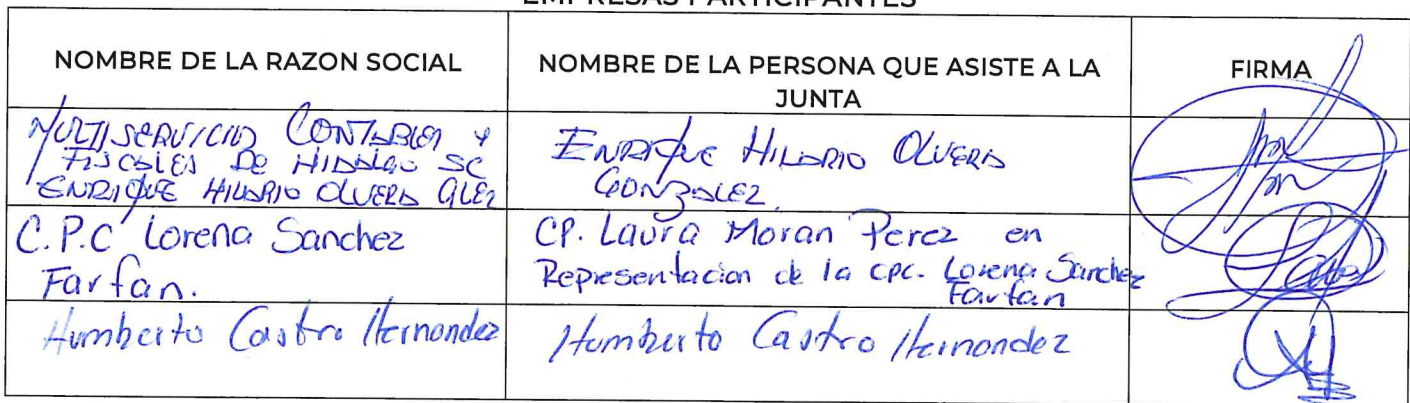 EMPRESAS PARTICIPANTES
NOMBRE DE LA RAZON SOCIAL
NOMBRE DE LA PERSONA QUE ASISTE A LA
JUNTA
FIRMA
MULTISERVICIOS CONTABLES Y
FISCALES DE HIDALGO SC
ENRIQUE HILARIO OLVERA GLEZ
ENRIQUE HILARIO OLVERA
GONZALEZ.
C.P.C Lorena Sanchez
Farfan.
CP. Laura Moran Perez en
Representacion de la CPC. Lorena Sanchez
Farfan
Humberto Castro Hernandez
Humberto Castro Hernandez